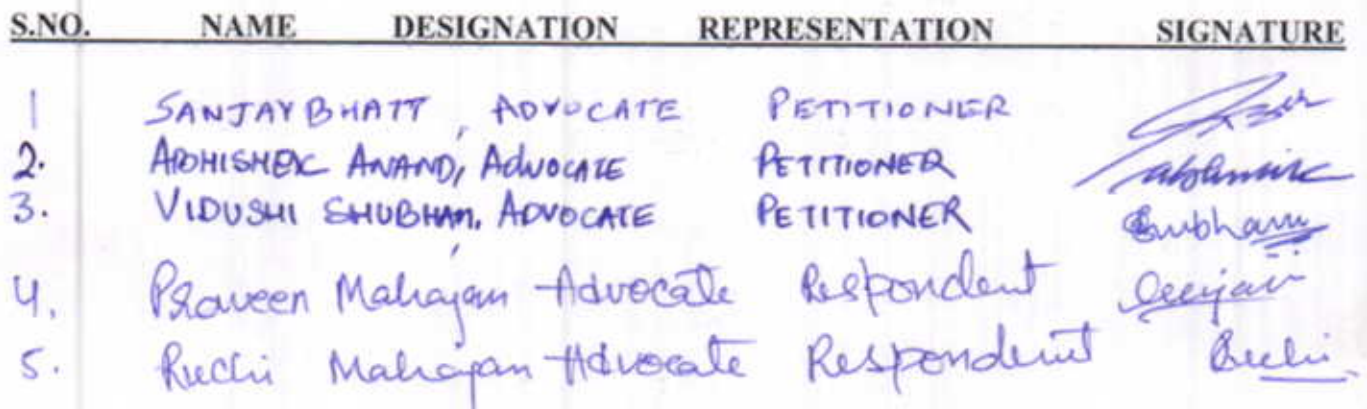 S.NO. NAME DESIGNATION REPRESENTATION SIGNATURE
1 SANJAY BHATT, ADVOCATE PETITIONER
2. ABHISHEK ANAND, ADVOCATE PETITIONER
3. VIDUSHI SHUBHAM, ADVOCATE PETITIONER Shubham
4. Praveen Mahajan Advocate Respondent
5. Ruchi Mahajan Advocate Respondent Ruchi